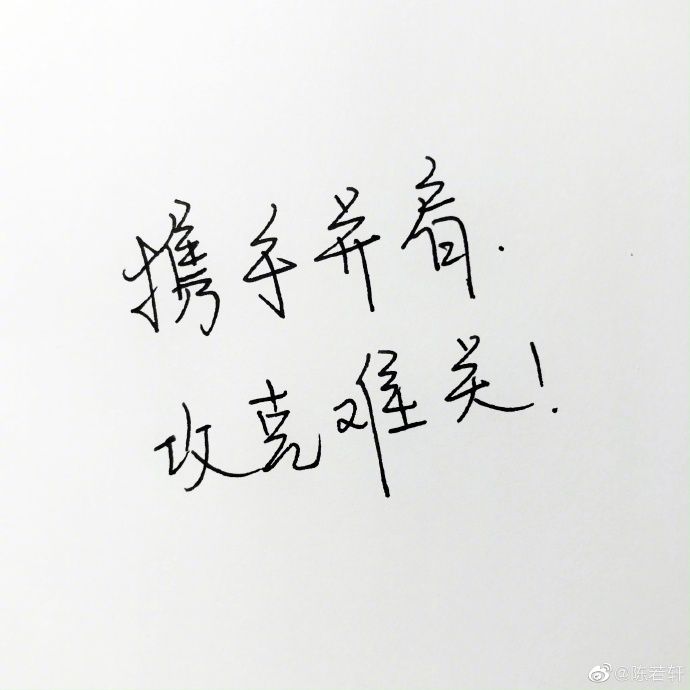 携手并肩.
攻克难关!
@陈若轩